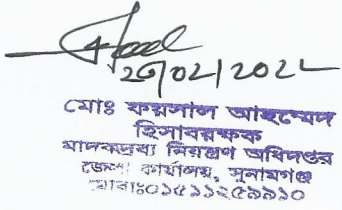 26/02/2022
মোঃ ফয়সাল আহম্মেদ
হিসাবরক্ষক
মাদকদ্রব্য নিয়ন্ত্রণ অধিদপ্তর
জেলা কার্যালয়, সুনামগঞ্জ
মোবাঃ০১৫১১২৫৯৯১০